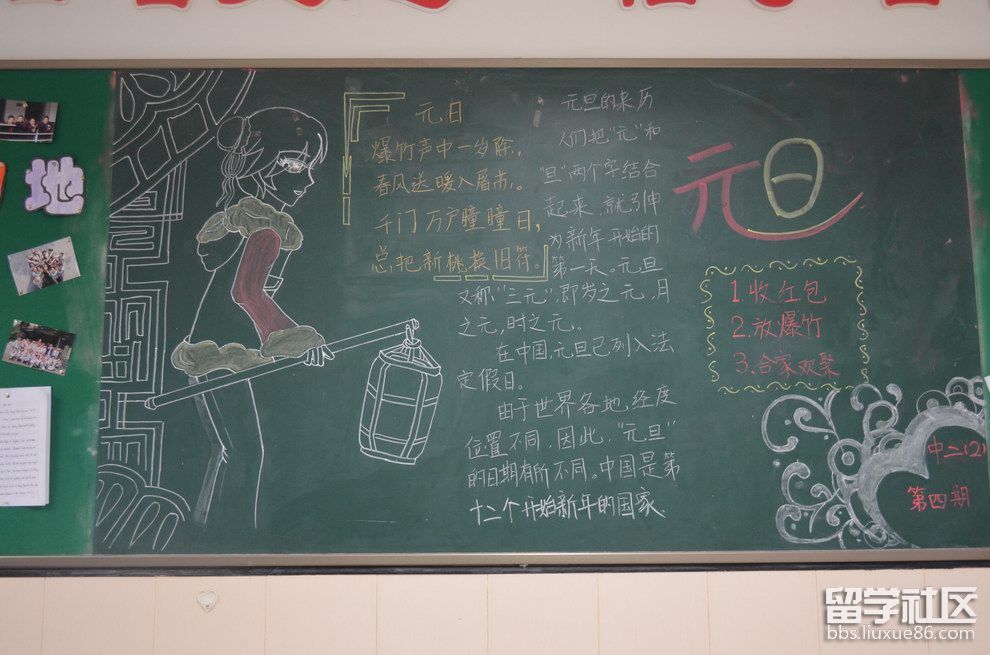 地
元日
爆竹声中一岁除,
春风送暖入屠苏。
千门万户曈曈日,
总把新桃换旧符。
元旦的来历
人们把“元”和
“旦”两个字结合
起来,就引申
为新年开始的
第一天。元旦
又称“三元”,即岁之元,月
之元,时之元。
在中国,元旦已列入法
定假日。
由于世界各地,经度
位置不同,因此,“元旦”
的日期有所不同。中国是第
十二个开始新年的国家.
元旦
1.收红包
2.放爆竹
3.合家欢聚
中二(2)
第四期
留学社区
bbs.liuxue86.com